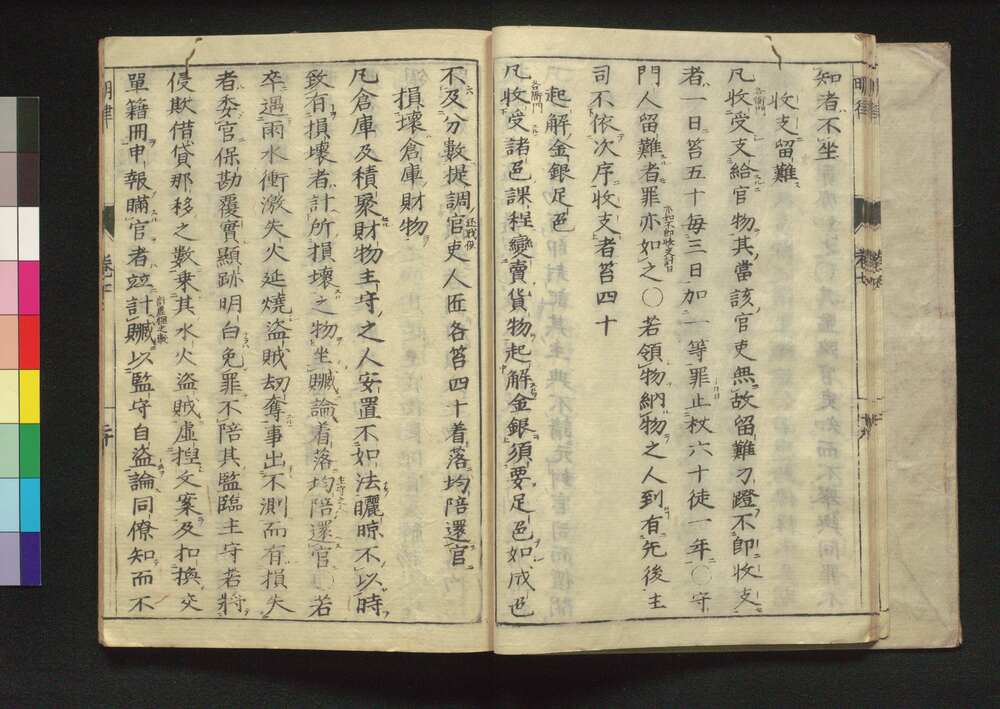 知者不坐
收支留難
凡收受支給官物其當該官吏無故留難刁蹬不即收支
者一日笞五十每三日加一等罪止杖六十徒一年〇守
門人留難者罪亦如之〇若領物納物之人到有先後主
司不依次序收支者笞四十
起解金銀足色
凡收受諸色課程變賣貨物起解金銀須要足色如成色
不及分數提調官吏人匠各笞四十着落均陪還官
損壞倉庫財物
凡倉庫及積聚財物主守之人安置不如法曬晾不以時
致有損壞者計所損壞之物坐贓論着落均陪還官〇若
卒遇雨水衝激失火延燒盜賊劫奪事出不測而有損失
者委官保勘覆實顯跡明白免罪不陪其監臨主守若將
侵欺借貸那移之數乘其水火盜賊虛捏文案及扣換交
單籍冊申報瞞官者竝計贓以監守自盜論同僚知而不
明律